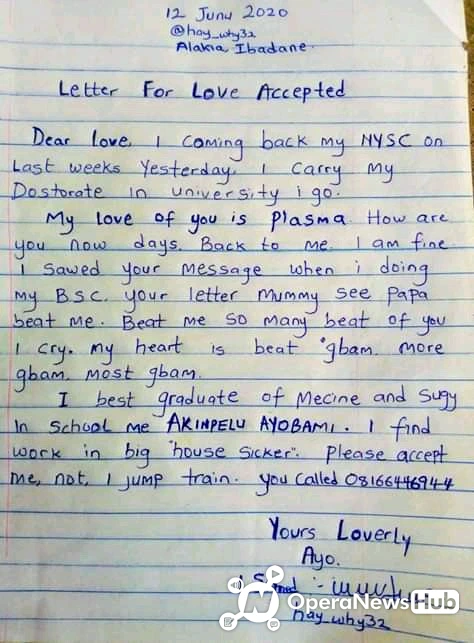 12 Junu 2020
@hay_why32
Alakia Ibadane.
Letter For Love Accepted
Dear love, I coming back my NYSC on
Last weeks Yesterday, I carry my
Dostorate in university i go.
My love of you is Plasma. How are
you now days. Back to me. I am fine.
I sawed your message when i doing
my BSC. your letter mummy see papa
beat me. Beat me so many beat of you
I cry. my heart is beat "gbam. more
gbam. most gbam.
I best graduate of Mecine and Sugy
In school me AKINPELU AYOBAMI. I find
work in big "house sicker". Please accept
me, not, I jump train. you called 08166446944
Yours Loverly
Ayo.
hay_why32
OperaNewsHub